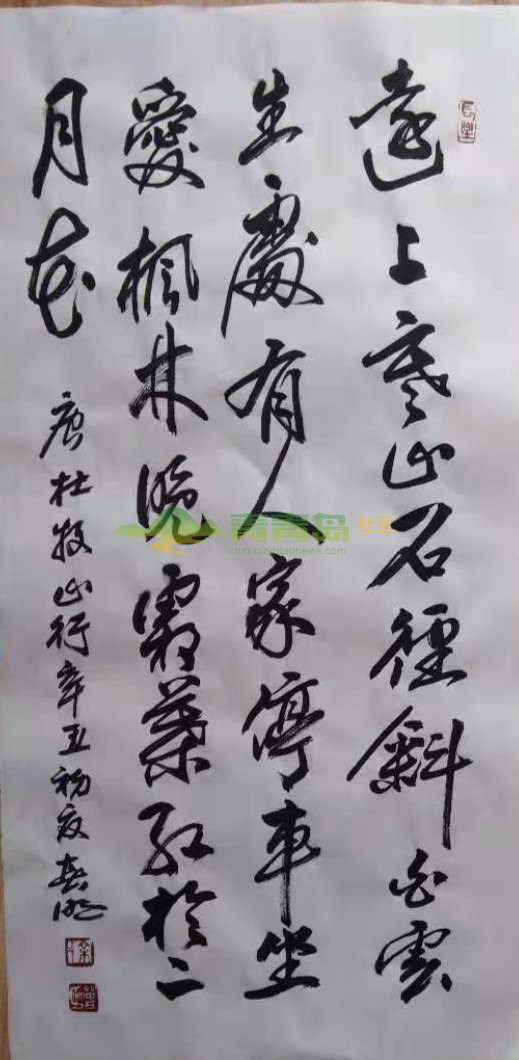 遠上寒山石徑斜白雲
生處有人家停車坐
愛楓林晚霜葉紅於二
月花
唐杜牧山行辛丑初夏春明
青青岛社区
club.qingdaonews.com